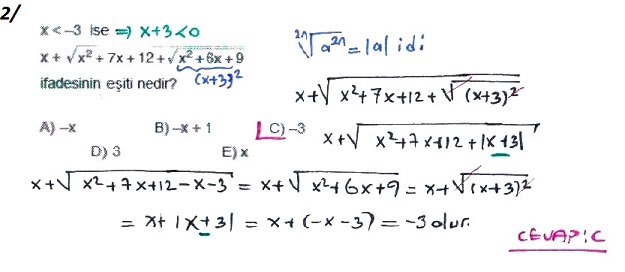 2/
x < -3 ise ⇒ x+3<0
x + √x² + 7x + 12 + √x² + 6x + 9
(x+3)²
ifadesinin eşiti nedir?
A) -x B) -x + 1 C) -3
D) 3 E) x
²ⁿ√a²ⁿ = |a| idi
x+√(x²+7x+12+√(x+3)²)
x+√(x²+7x+12+|x+3|)
x+√(x²+7x+12-x-3) = x+√(x²+6x+9) = x+√(x+3)²
= x+|x+3| = x+(-x-3) = -3 olur.
CEVAP: C